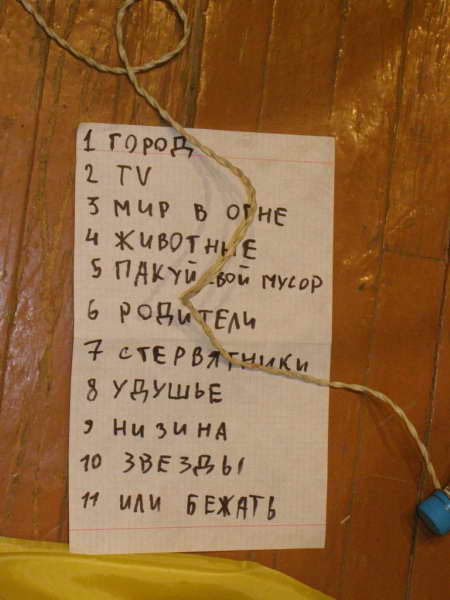 1 ГОРОД
2 TV
3 МИР В ОГНЕ
4 ЖИВОТНЫЕ
5 ПАКУЙ СВОЙ МУСОР
6 РОДИТЕЛИ
7 СТЕРВЯТНИКИ
8 УДУШЬЕ
9 НИЗИНА
10 ЗВЕЗДЫ
11 ИЛИ БЕЖАТЬ